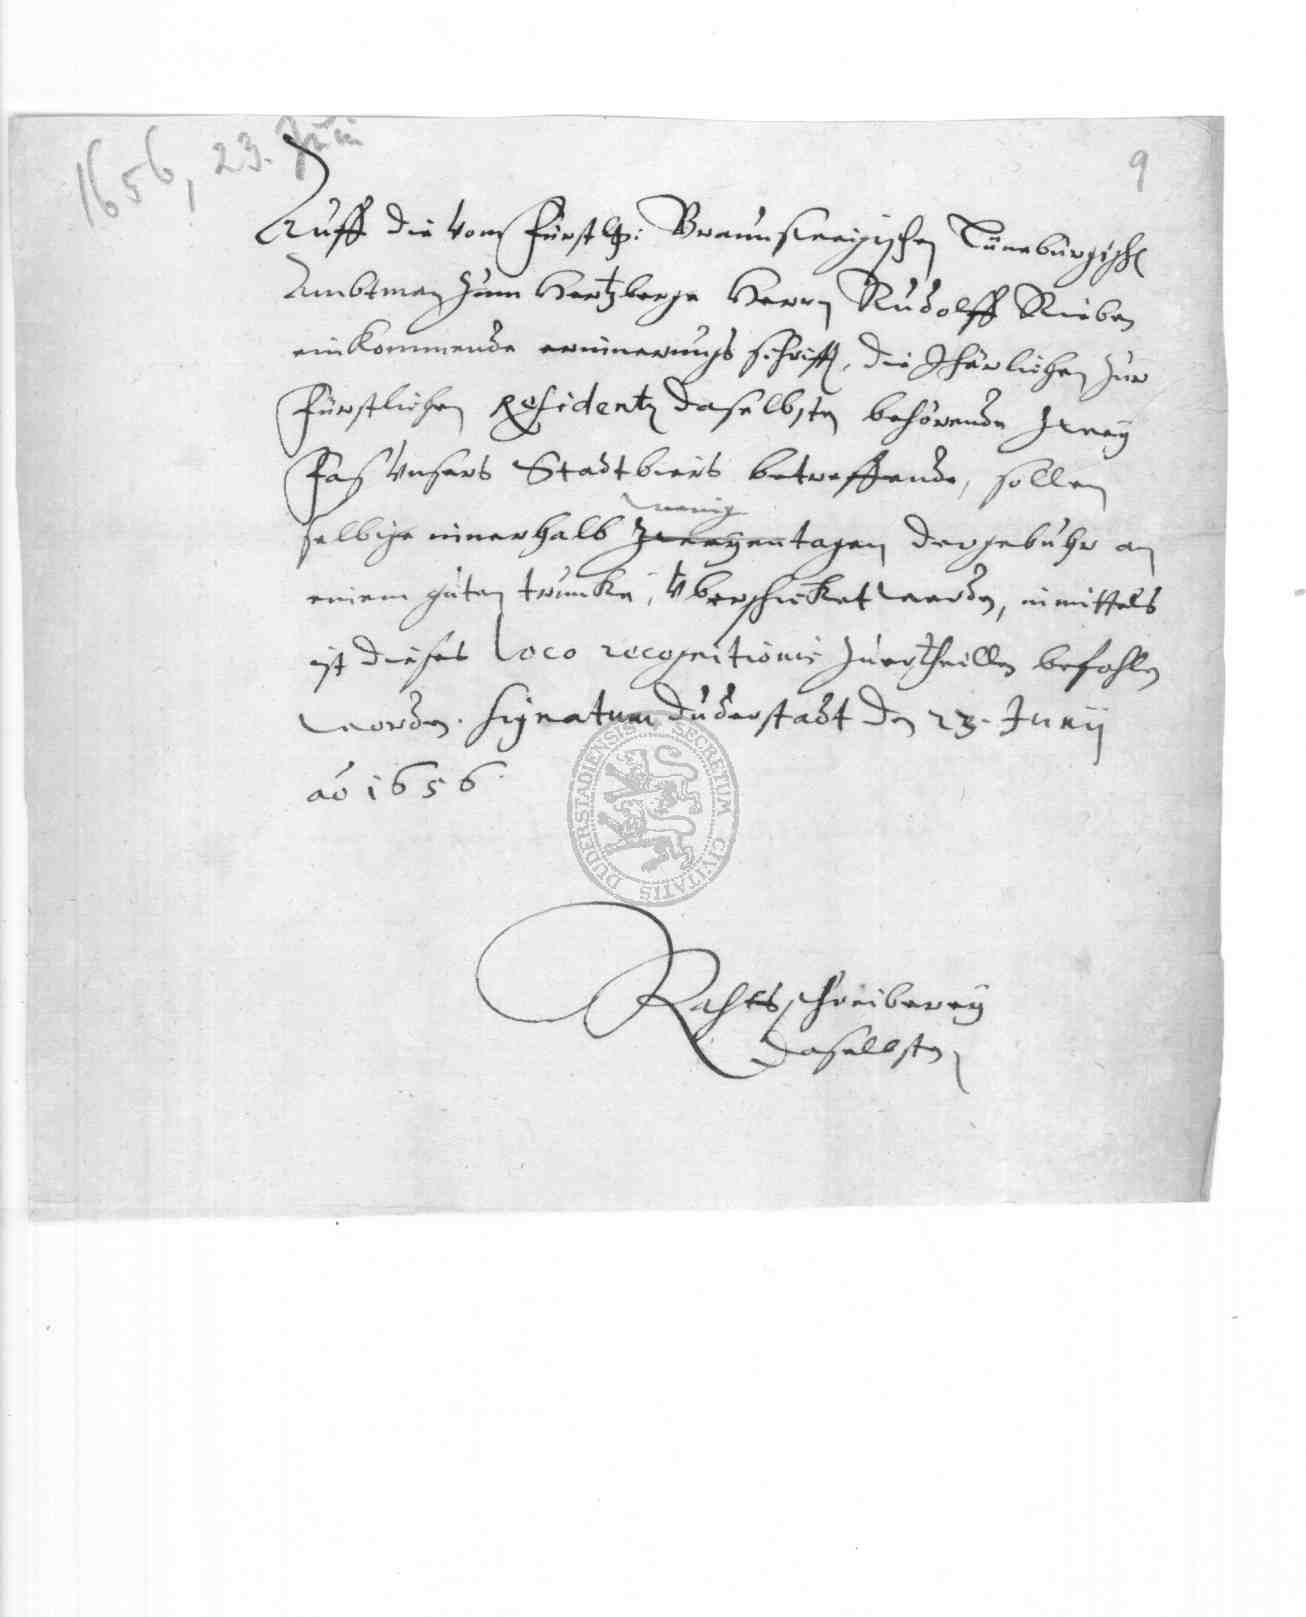 1656, 23. Juni
9
Auff die vom Fürstlh: Braunschweigischen Lüneburgisch
Ambtman zum Hertzberge Herrn Rudolff Rieben
einkommende erinnerungs schrifft, die Jhärlichen zur
Fürstlichen Residentz daselbsten behörende zwey
Fas unsers Stadtbiers betreffende, sollen
wenig
selbige innerhalb zweyen tagen der gebuhr an
einem guten truncke, überschicket werden, inmittels
ist dieses loco recognitionis zuertheillen befohlen
worden. Signatum Duderstadt den 23. Junij
ao 1656
SECRETUM CIVITATIS DUDERSTADIENSIS
Rahtsschreiberey
daselbsten